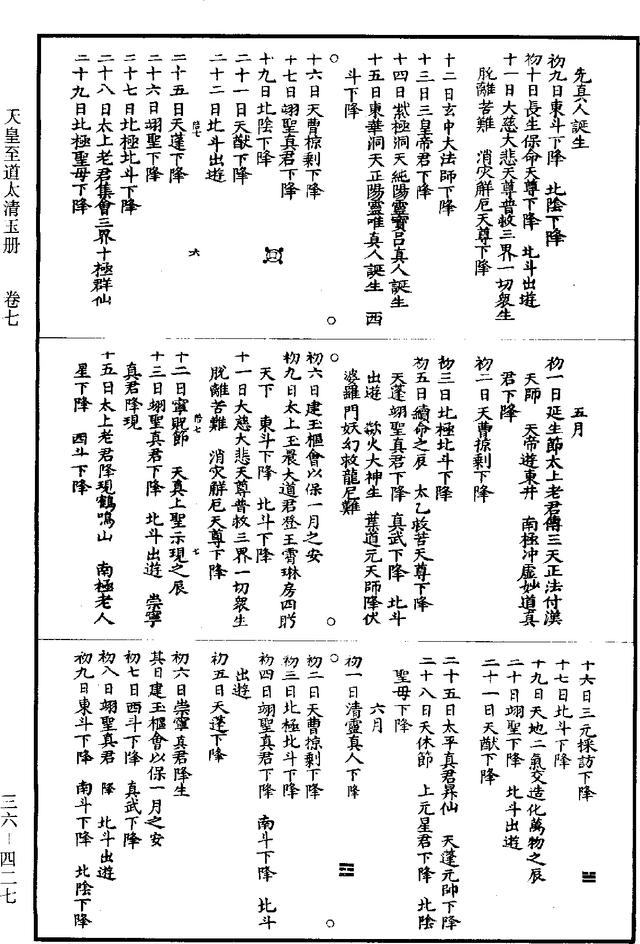 天皇至道太清玉册　卷七
三六－四二七
先真人誕生
初九日東斗下降　北陰下降
初十日長生保命天尊下降　北斗出遊
十一日大慈大悲天尊普救三界一切衆生
脫離苦難　消灾解厄天尊下降
十二日玄中大法師下降
十三日三皇帝君下降
十四日紫極洞天純陽靈寶呂真人誕生
十五日東華洞天正陽靈唯真人誕生　西
斗下降
十六日天曹掠剩下降
十七日翊聖真君下降
十九日北陰下降
二十一日天猷下降
二十二日北斗出遊
陪七　六
二十五日天蓬下降
二十六日翊聖下降
二十七日北極北斗下降
二十八日太上老君集會三界十極群仙
二十九日北極聖母下降
五月
初一日延生節太上老君傳三天正法付漢
天師　天帝遊東井　南極冲虛妙道真
君下降
初二日天曹掠剩下降
初三日北極北斗下降
初五日續命之辰　太乙救苦天尊下降
天蓬翊聖真君下降　真武下降　北斗
出遊　歘火大神生　葉道元天師降伏
婆羅門妖幻救龍尼難
初六日建玉樞會以保一月之安
初九日太上玉晨大道君登玉霄琳房四眄
天下　東斗下降　北斗下降
十一日大慈大悲天尊普救三界一切衆生
脫離苦難　消灾解厄天尊下降
陪七　七
十二日寧貺節　天真上聖示現之辰
十三日翊聖真君下降　北斗出遊　崇寧
真君降現
十五日太上老君降現鶴鳴山　南極老人
星下降　西斗下降
十六日三元採訪下降
十七日北斗下降
十九日天地二氣交造化萬物之辰
二十日翊聖下降　北斗出遊
二十一日天猷下降
二十五日太平真君昇仙　天蓬元帥下降
二十八日天休節　上元星君下降　北陰
聖母下降
六月
初一日清靈真人下降
初二日天曹掠剩下降
初三日北極北斗下降
初四日翊聖真君下降　南斗下降　北斗
出遊
初五日天蓬下降
初六日崇寧真君降生
其日建玉樞會以保一月之安
初七日西斗下降　真武下降
初八日翊聖真君　降　北斗出遊
初九日東斗下降　南斗下降　北陰下降